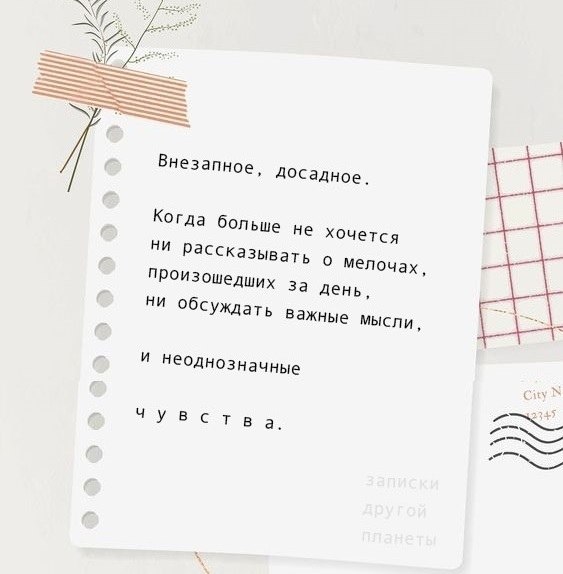 Внезапное, досадное.
Когда больше не хочется
ни рассказывать о мелочах,
произошедших за день,
ни обсуждать важные мысли,
и неоднозначные
ч у в с т в а.
записки
другой
планеты
City N
12345